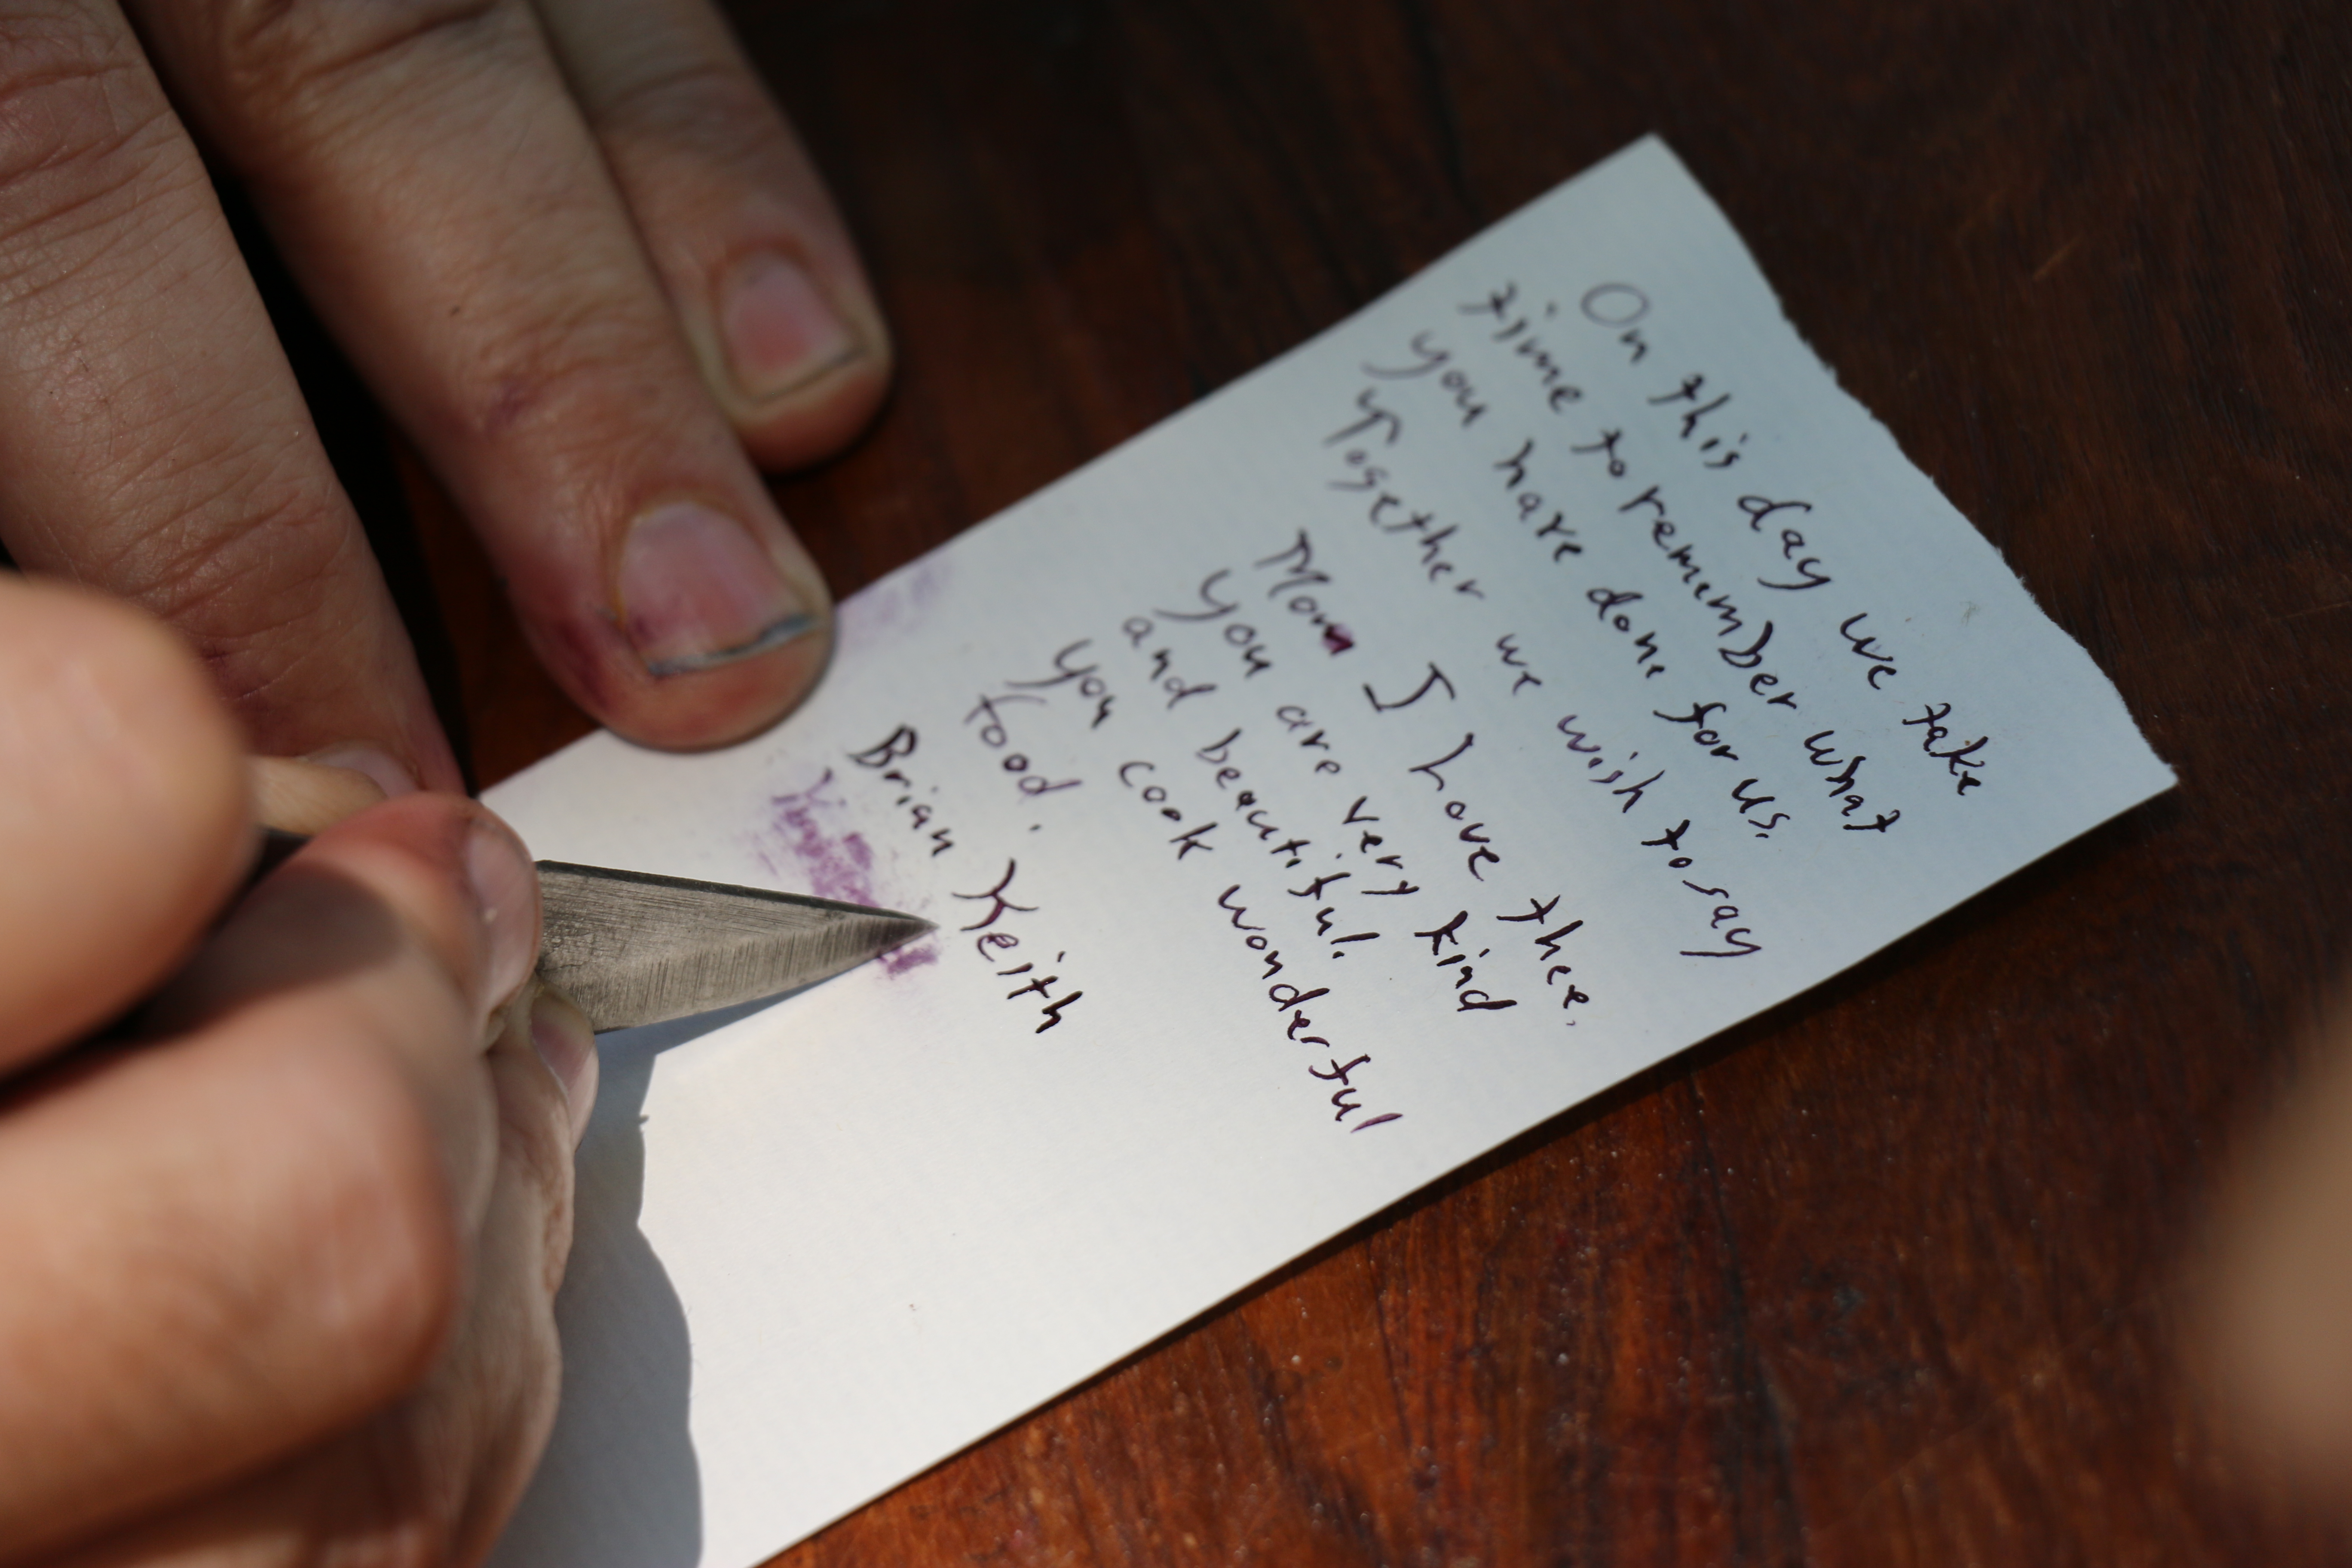 On this day we take
time to remember what
you have done for us.
Together we wish to say
Mom I Love thee.
you are very kind
and beautiful.
you cook wonderful
food.
Brian Keith